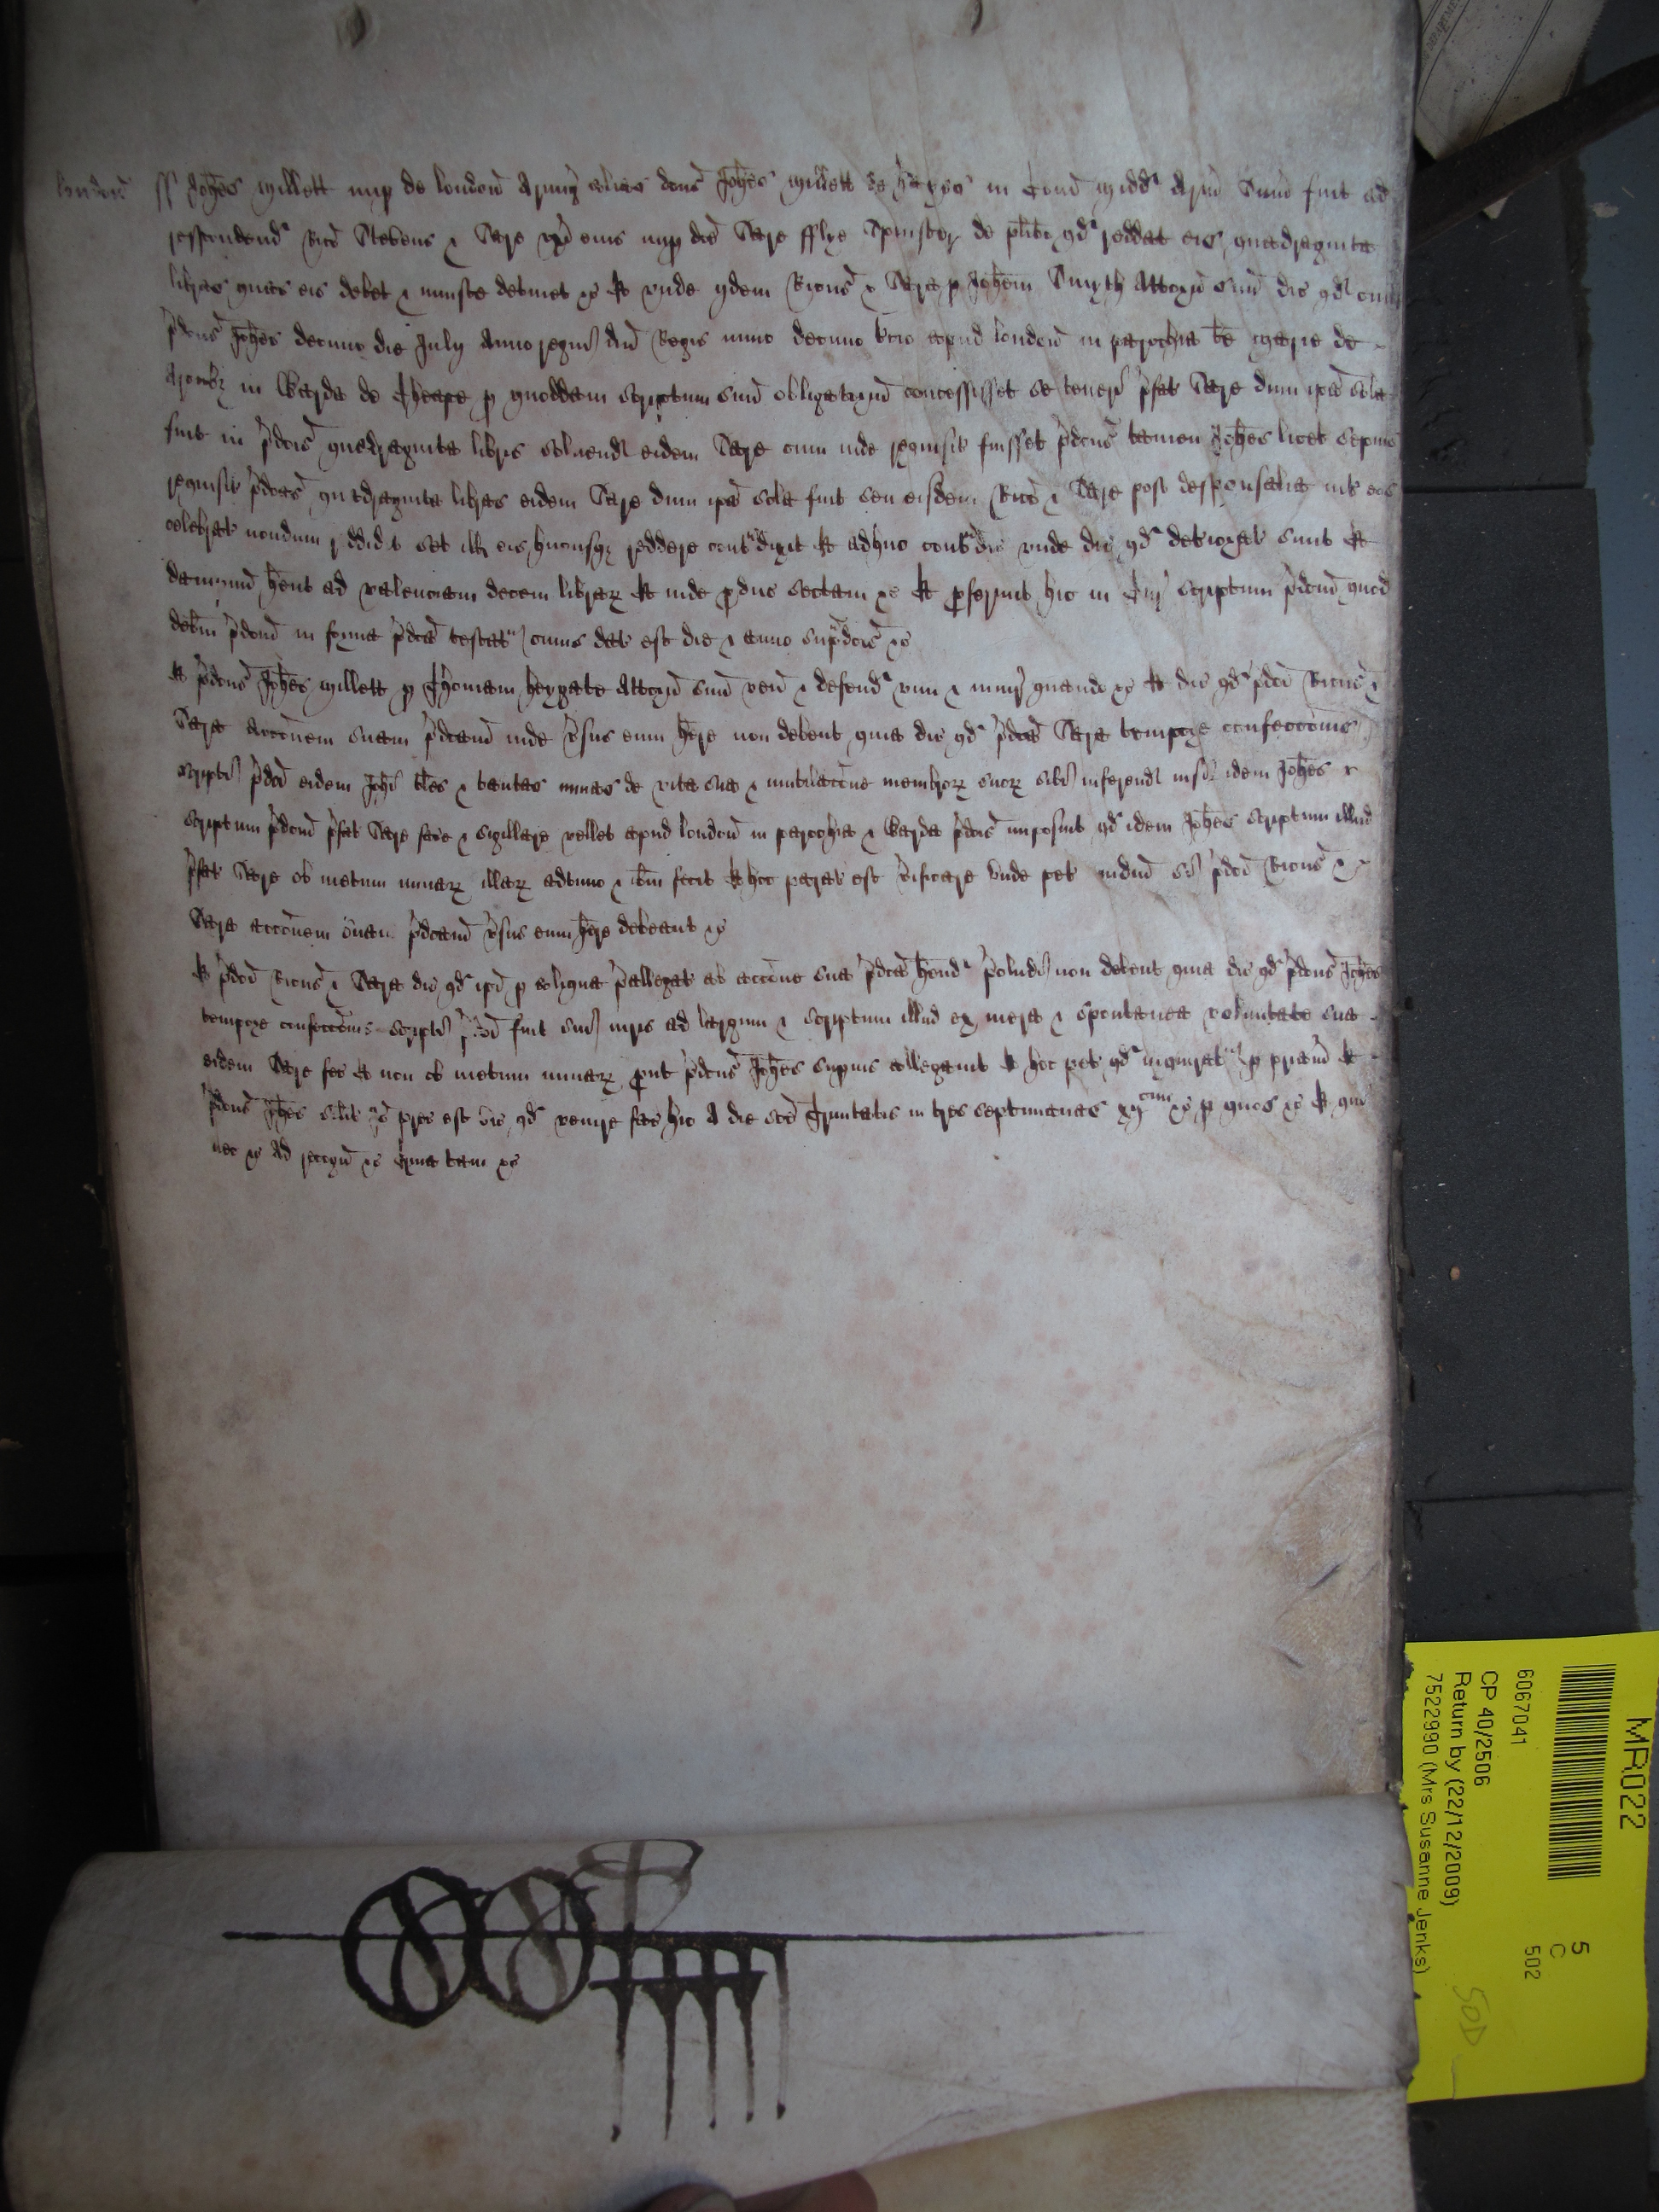 London ss Johes Millett nup de London Armig alias dcus Johes Millett de in Com Midd Arm Sum fuit ad
respondend Rico Stevens & Sare ux eius nup dce Sare fflye Spinster de plito qd reddat eis quadraginta
libras quas eis debet & iniuste detinet &c Et unde ijdem Ricus & Sara p Johem Smyth Attorn suu dic qd cum
pdcus Johes decimo die July Anno regni dni Regis nunc decimo tcio apud London in parochia be Marie de
Arcubz in Warda de Cheape p quoddam scriptum suu obligatoriu concessisset se teneri pfat Sare dum ipa sola
fuit in pdcis quadraginta libris solvend eidem Sare cum inde requisit fuisset pdcus tamen Johes licet sepius
requisit pdcas quadraginta libras eidem Sare dum ipa sola fuit seu eisdem Rico & Sare post desponsalia int eos
celebrat nondum reddidit set ill eis hucusqz reddere contradixit Et adhuc contradic unde dic qd deteriorat sunt Et
dampnum hent ad valenciam decem librarz Et inde pduc sectam &c Et pferunt hic in Cur scriptum pdcum quod
debitm pdcum in forma pdca testat cuius dat est die & anno supdcis &c
Et pdcus Johes Millett p Thomam Heygate Attorn suu ven & defend vim & iniur quando &c Et dic qd pdci Ricus &
Sara accoem suam pdcam inde vsus eum here non debent quia dic qd pdca Sara tempore confeccois
scripti pdci eidem Johi tales & tantas minas de vita sua & mutilacoe membrorz suorz sibi inferend nisi idem Johes
scriptum pdcum pfat Sare face & sigillare vellet apud London in parochia & Warda pdcis imposuit qd idem Johes scriptum illud
pfat Sare ob metum minarz illarz adtunc & ibm fecit Et hoc parat est vificare Unde pet iudiciu si pdci Ricus &
Sara accoem suam pdcam vsus eum here debeant &c
Et pdci Ricus & Sara dic qd ipi p aliqua pallegat ab accoe sua pdca hend pcludi non debent quia dic qd pdcus Johes
tempore confeccois scripti pdci fuit sui iuris ad largum & scriptum illud ex mera & spontanea voluntate sua
eidem Sare fec Et non ob metum minarz put pdcus Johes supius allegavit Et hoc pet qd inquirat p priam Et
pdcus Johes silit Io prec est vic qd venire fac hic A die sce Trinitatis in tres septimanas xij &c p quos &c Et qui
nec &c Ad recogn &c Quia tam &c
MR022
6067041
5
C
502
CP 40/2506
Return by (22/12/2009)
7522990 (Mrs Susanne Jenks)
50D